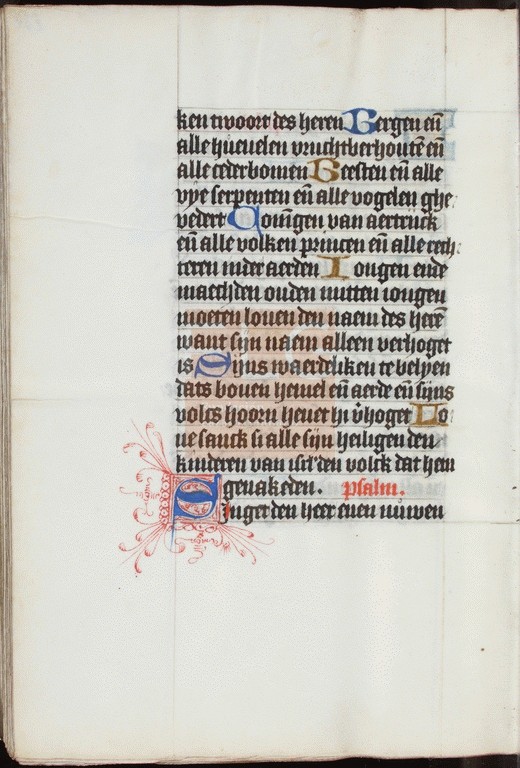 ken twoort des heren Bergen en̄
alle hueuelen vruchtberhoute en̄
alle cederbomen Beesten en̄ alle
vye serpenten en̄ alle vogelen ghe
vedert Coningen van aertrijck
en̄ alle volken princen en̄ alle rech
teren inder aerden Iongen ende
maechden ouden mitten iongen
moeten louen den naem des here̅
want sijn naem alleen verhoget
is Sijns waerdeliken te belyen
dats bouen hemel en̄ aerde en̄ sijns
volcs hoorn heuet hi v̄hoget Lo
uesanck si alle sijn heiligen den
kinderen van isrl' den volck dat hem
genakeden. psalm.
Singet den heer enen nuwen